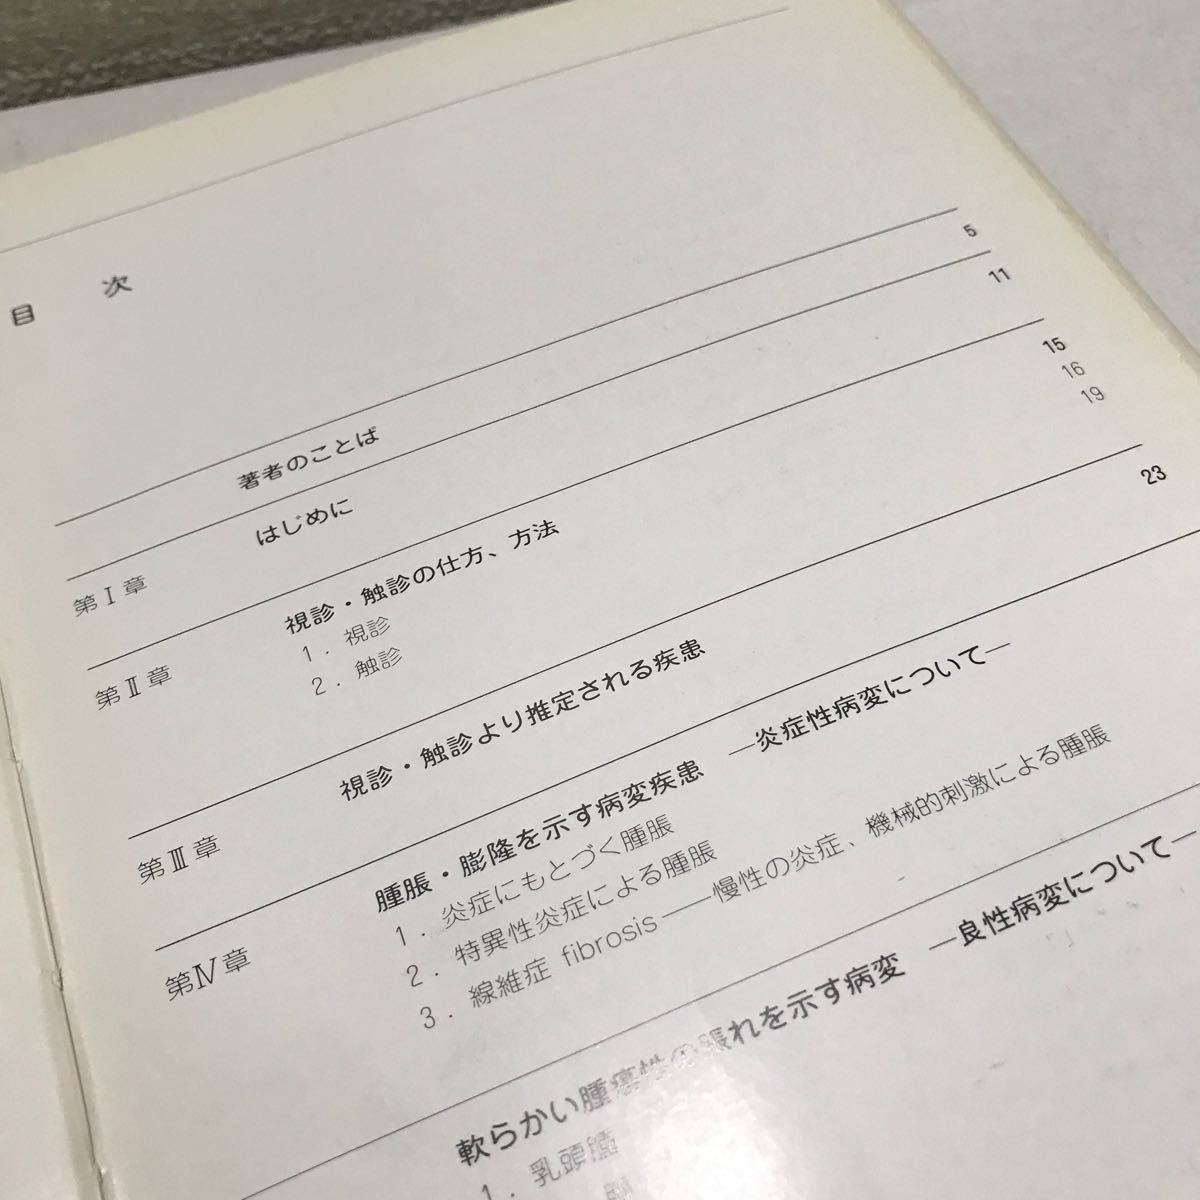 目 次
著者のことば 5
はじめに 11
第Ⅰ章 視診・触診の仕方、方法 15
1. 視診 16
2. 触診 19
第Ⅱ章 視診・触診より推定される疾患 23
第Ⅲ章 腫脹・膨隆を示す病変疾患 —炎症性病変について—
1. 炎症にもとづく腫脹
2. 特異性炎症による腫脹
3. 線維症 fibrosis——慢性の炎症、機械的刺激による腫脹
第Ⅳ章 軟らかい腫瘍性の脹れを示す病変 —良性病変について—
1. 乳頭腫